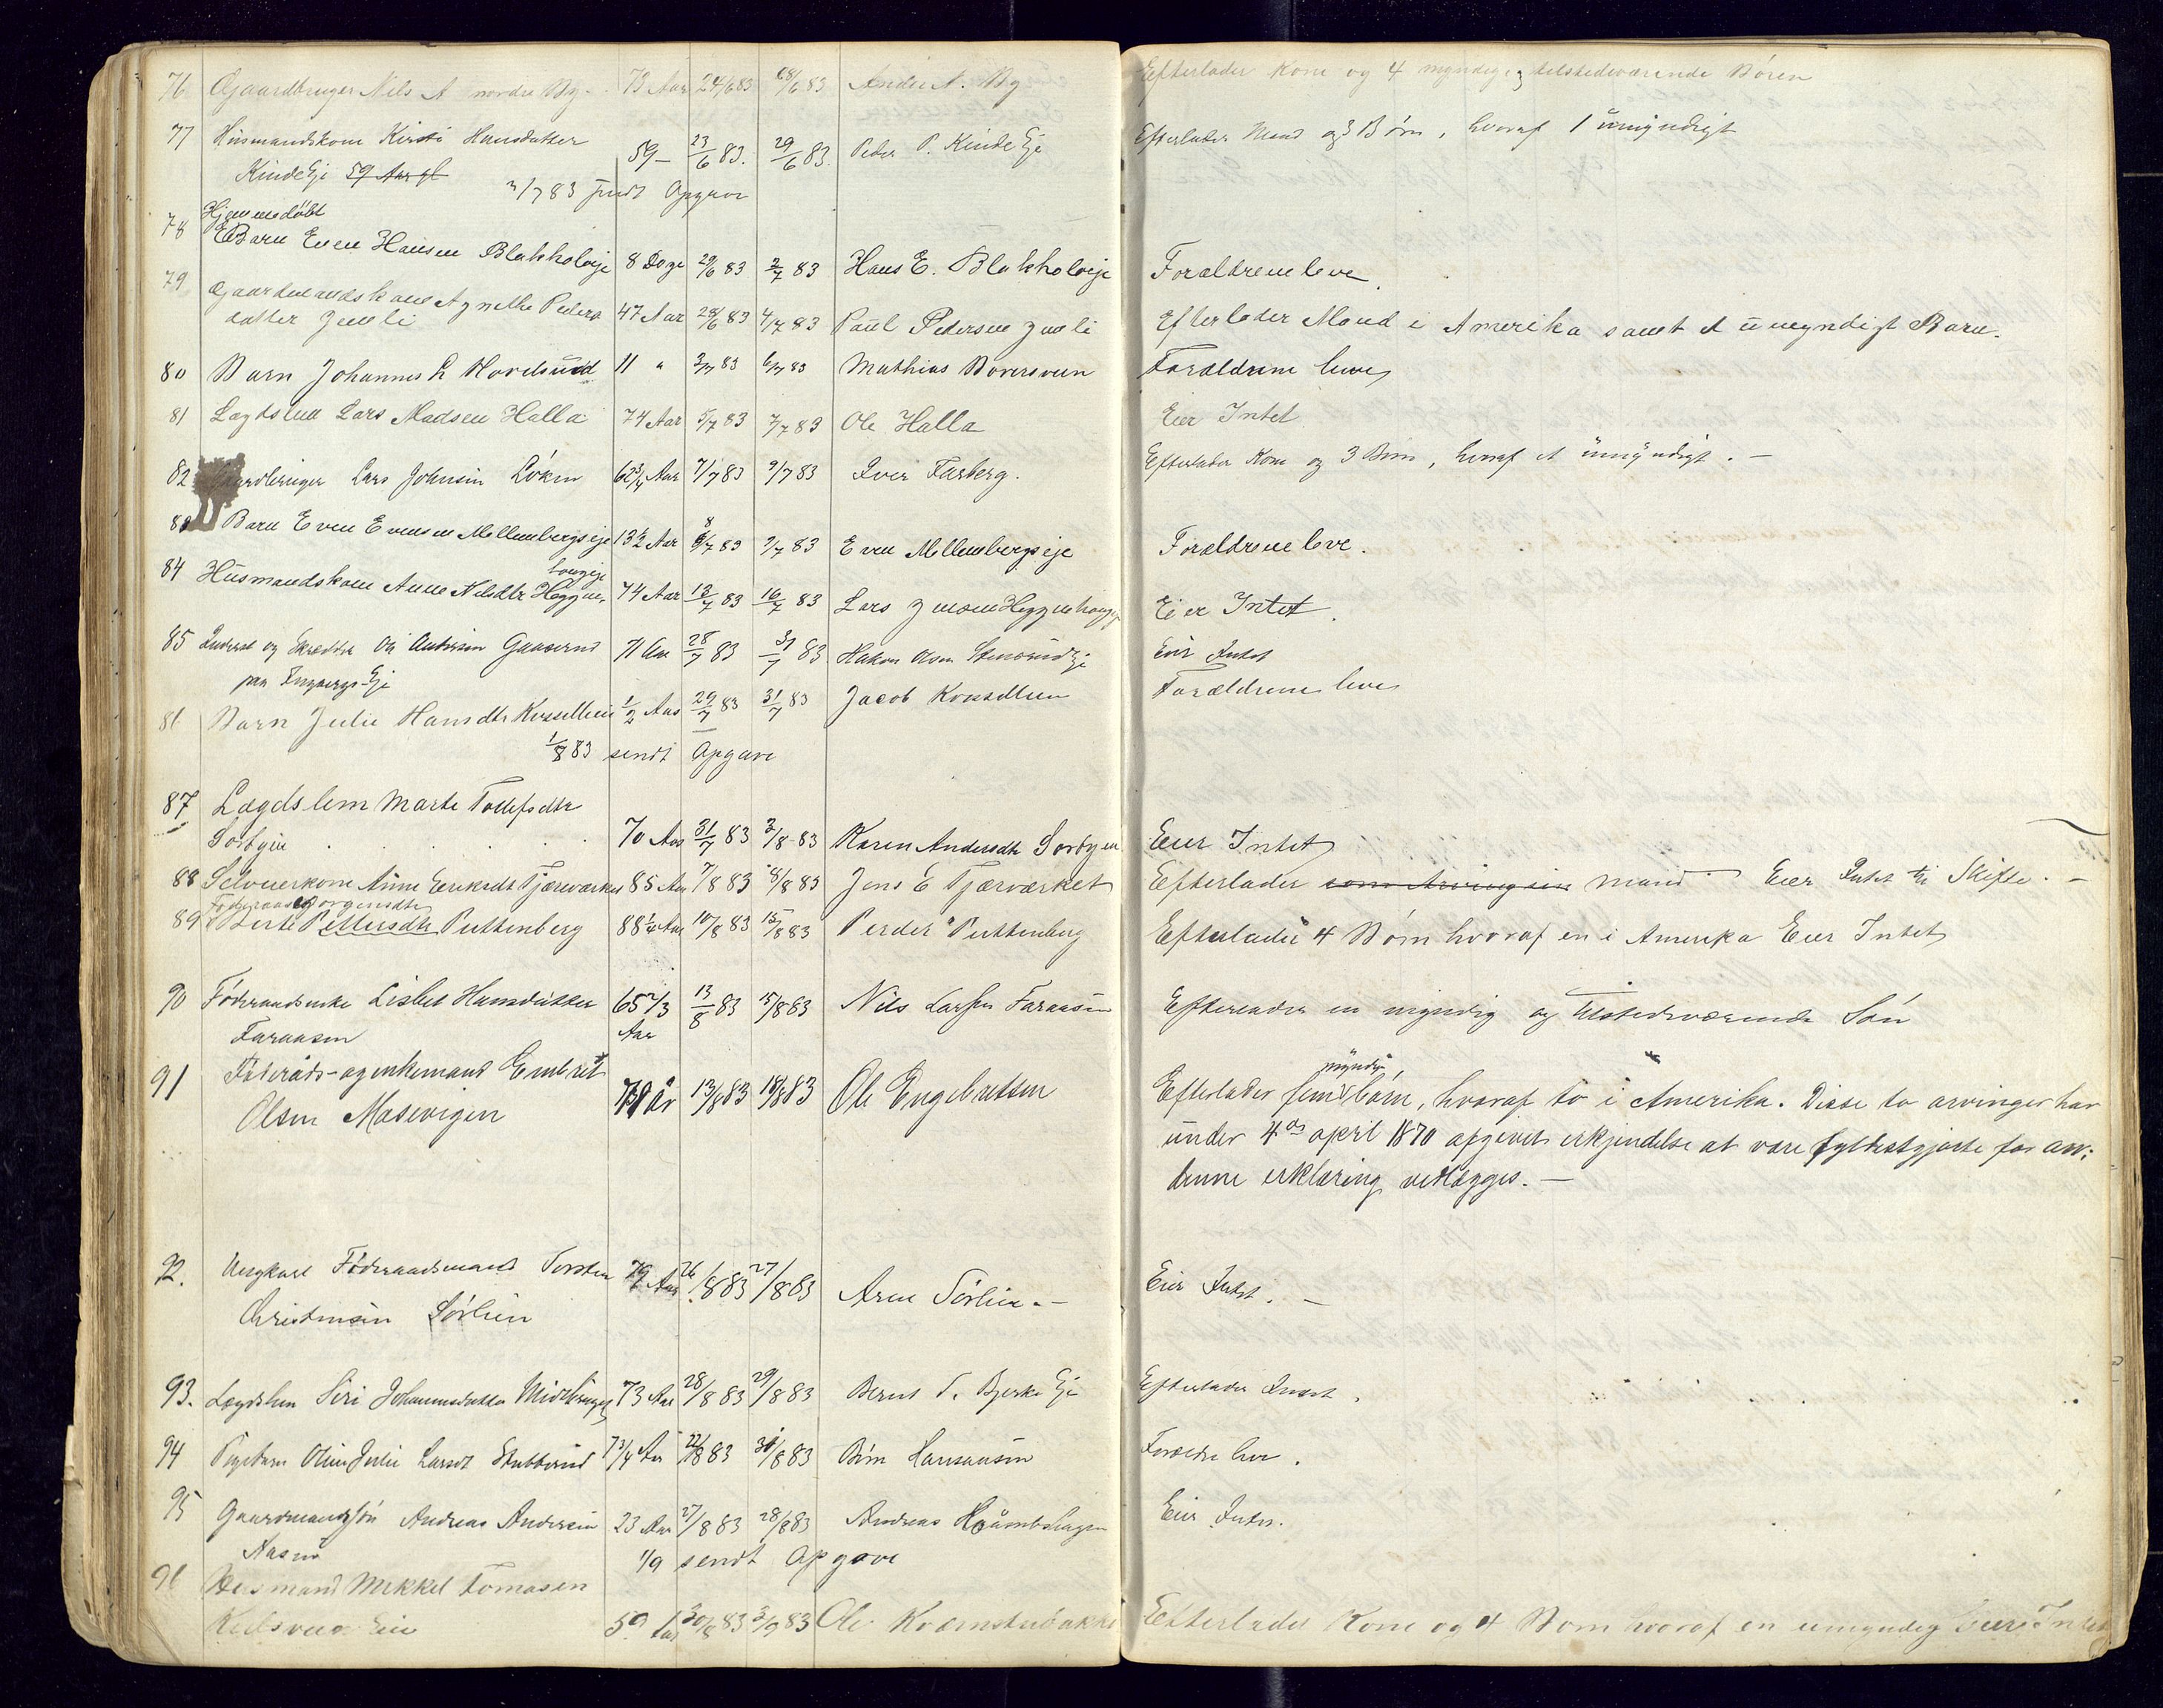 76 Gaardbruger Nils A nordre By 73 Aar 24/6 83 28/6 83 Andr. N. By Efterlader Kone og 4 myndige, tilstedeværende Børen
77 Husmandskone Kirsti Hansdatter 59 – 23/6 83. 29/6 83. Peder P. Kinde Eje Efterlader Mand og 3 Børn, hvoraf 1 umyndigt
Kinde Eje 59 Aar gl
2/7 83 sendt Opgave
Hjemmedøbt
78 Barn Even Hansen Blakholeje 8 Dage 29/6 83 2/7 83 Hans E. Blakholeje Forældrene leve.
79 Gaardmandskone Agnethe Peders 47 Aar 28/6 83 4/7 83 Paul Pedersen Juvli Efterlader Mand i Amerika samt et umyndigt Barn.
datter Juvli
80 Barn Johannes L Hovelsrud 11 " 3/7 83 6/7 83 Mathias Boversveen Forældrene leve
81 Lægdslem Lars Madsen Halla 74 Aar 5/7 83 7/7 83 Ole Halla Eier Intet
82 Gaardbruger Lars Johnsen Løken 62 3/4 Aar 7/7 83 9/7 83 Iver Farberg. Efterlader Kone og 3 Børn, hvoraf et umyndigt. –
83 Barn Even Evensen Mellembergseje 13 1/2 Aar 8/7 83 9/7 83 Even Mellembergseje Forældrene leve.
haugeje
84 Husmandskone Anne Nilsdtr Heggen 74 Aar 13/7 83 16/7 83 Lars Jensen Heggenhauge Eier Intet.
85 Inderst og Skrædder Ole Andersen Gaaserud 71 Aar 28/7 83 31/7 83 Hakon Olsen Stensrud Eje Eier Intet
paa Engbergs Eje
86 Barn Julie Hansdtr Krossellien 1/2 Aar 29/7 83 31/7 83 Jacob Krossellien Forældrene leve
1/8 83 sendt Opgave
87 Lægdslem Marte Tollefsdtr
Sorbyen 70 Aar 31/7 83 3/8 83 Karen Andersdtr Sorbyen Eier Intet
88 Selveierkone Anne Eriksdt Tjærverket 85 Aar 7/8 83 8/8 83 Jens E Tjærværket Efterlader som Arving sin mand Eier Intet til Skifte. –
Føderaads Jørgensdtr
89 Berte Pettersdtr Puttenberg 88 1/4 Aar 10/8 83 15/8 83 Peder Puttenberg Efterlader 4 Børn hvoraf en i Amerika Eier Intet
90 Føderaadsenke Lisbet Hansdatter 65 2/3 13/8 83 15/8 83 Nils Larsen Faraasen Efterlader en myndig og tilstedeværende Søn
Faraasen Aar
91 Føderåds- og enkemand Embret 78 år 13/8 83 18/8 83 Ole Engebretsen Efterlader fem børn, hvoraf to i Amerika. Disse to arvinger har
myndige,
Olsen Masevigen under 4de april 1870 afgivet erkjendelse at være fyldestgjorte for arv;
denne erklæring vedlægges. –
92. Ungkarl Føderaadsmand Torsten 79 Aar 26/8 83 27/8 83 Arne Sørlien. – Eier Intet. –
Christensen Sørlien
93. Lægdslem Siri Johannesdatter Midtskoge 73 Aar 28/8 83 29/8 83 Bernt T. Bjerke Eje Efterlader Intet.
94 Pigebarn Oline Julie Larsdt Stubberud 7 3/4 Aar 22/8 83 31/8 83 Børn Hansaasen Forældre lever.
95 Gaardmandssøn Andreas Andersen 23 Aar 27/8 83 28/8 83 Andreas Haambhagen Eier Intet.
Aasen 1/9 sendt Opgave
96 Husmand Mikkel Tomasen
Kilsveen Eie 59 Aar 30/8 83 3/9 83 Ole Kvernstubakke Efterlader Kone og 4 Børn hvoraf en umyndig Eier Intet